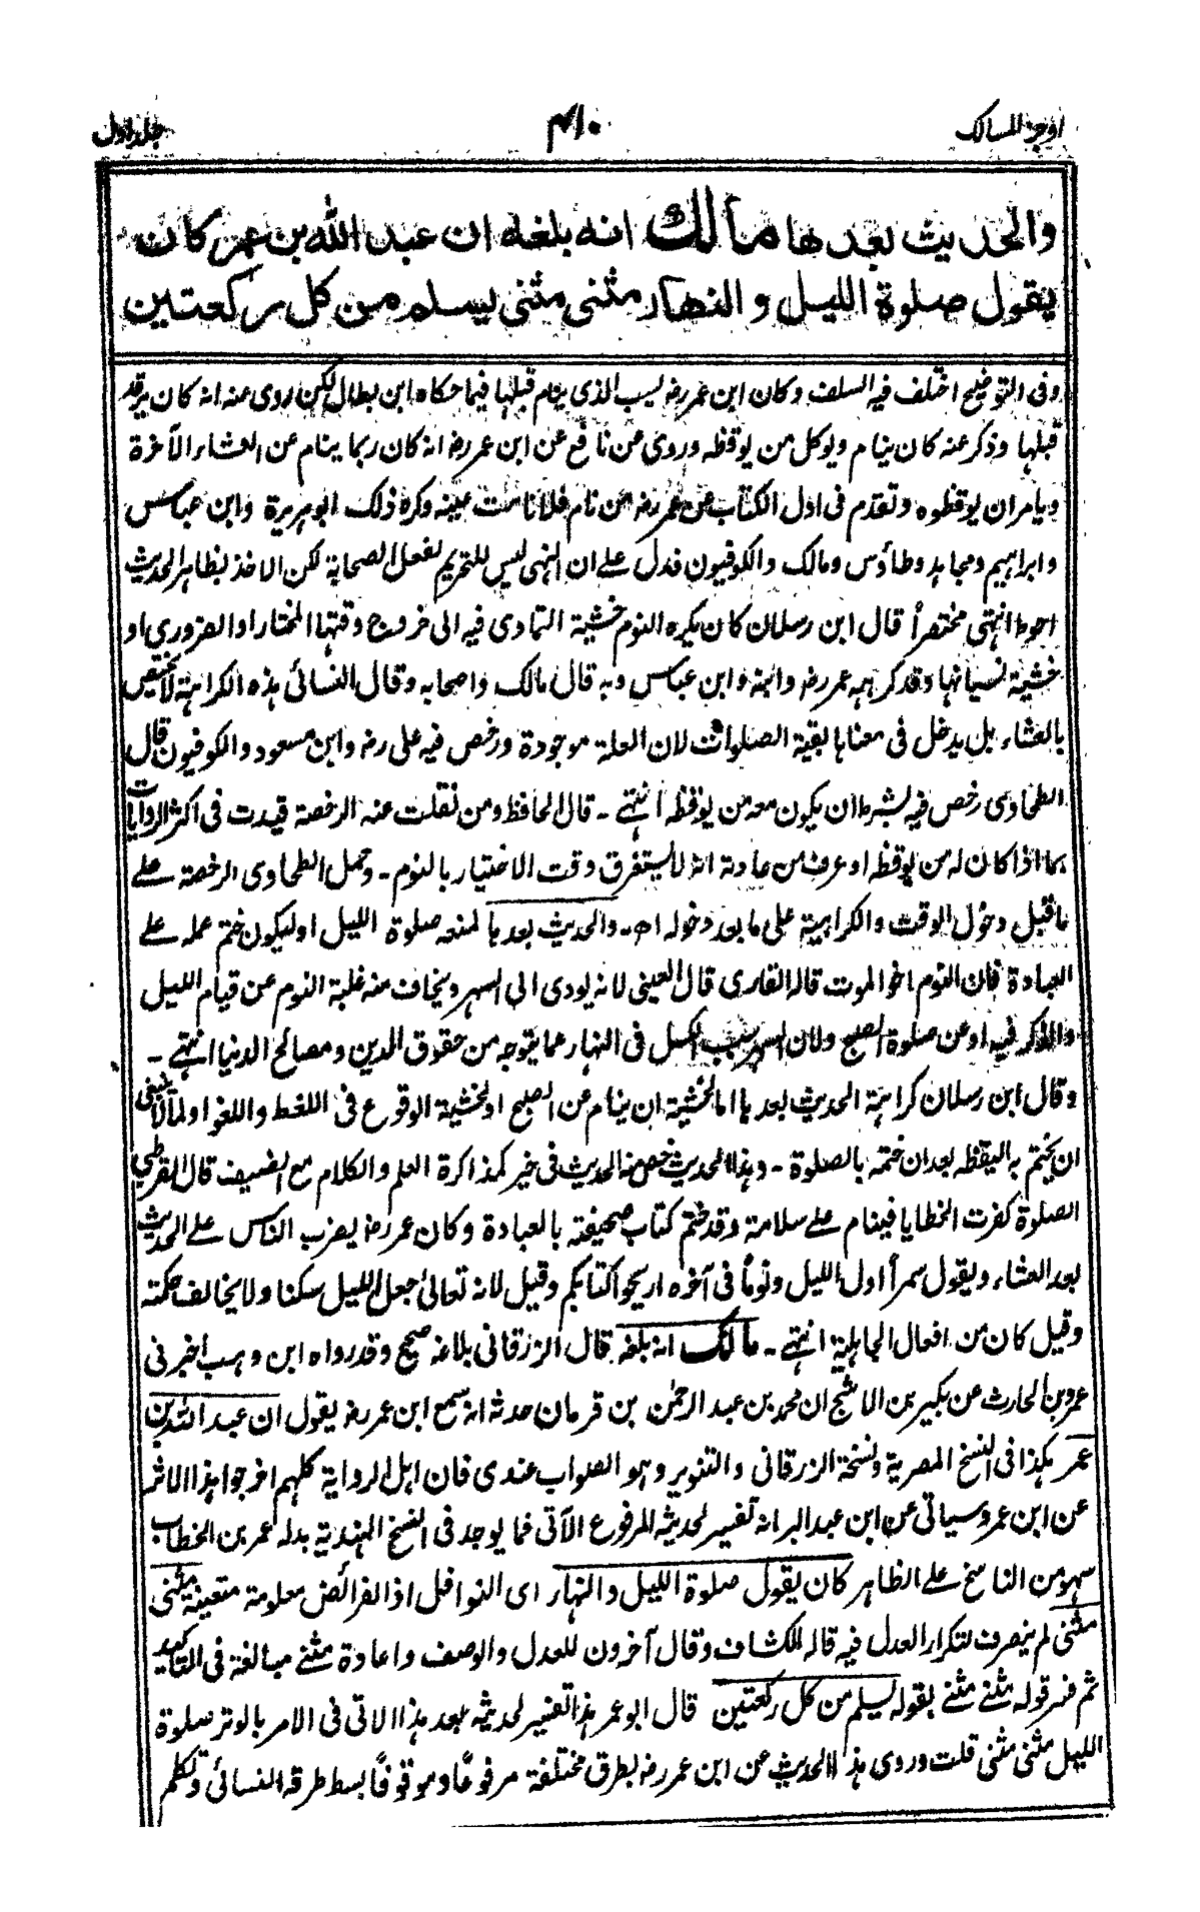 اوجز المسالك ٤١٠ جلد اول
والحديث بعدها مالك انه بلغه ان عبد الله بن عمر كان
يقول صلوة الليل والنهار مثنى مثنى يسلم من كل ركعتين
وفى التوضيح اختلف فيه السلف وكان ابن عمر رضـ يسب الذى ينام قبلها فيما حكاه ابن بطال لكن روى عنه انه كان يرقد
قبلها وذكر عنه كان ينام ويوكل من يوقظه وروى عن نافع عن ابن عمر رضـ انه كان ربما ينام عن العشاء الآخرة
ويامر ان يوقظوه وتقدم فى اول الكتاب عن عمر رضـ من نام فلا نامت عينه وكره ذلك ابو هريرة وابن عباس
وابراهيم ومجاهد وطاؤس ومالك والكوفيون فدل على ان النهى ليس للتحريم لفعل الصحابة لكن الاخذ بظاهر الحديث
احوط انتهى مختصراً قال ابن رسلان كان يكره النوم خشية التمادى فيه الى خروج وقتها المختار او الضرورى او
خشية نسيانها وقد كرهه عمر رضـ وابنه وابن عباس وبه قال مالك واصحابه وقال النسائى هذه الكراهة لا تختص
بالعشاء بل يدخل فى معناها بقية الصلوات لان العلة موجودة ورخص فيه على رضـ وابن مسعود والكوفيون قال
الطحاوى رخص فيه بشرط ان يكون معه من يوقظه انتهى ـ قال الحافظ ومن نقلت عنه الرخصة قيدت فى اكثر الروايات
بما اذا كان له من يوقظه او عرف من عادته انه لا يستغرق وقت الاختيار بالنوم ـ وحمل الطحاوى الرخصة على
ما قبل دخول الوقت والكراهية على ما بعد دخوله اهـ والحديث بعدها لمنعه صلوة الليل او ليكون ختم عمله على
العبادة فان النوم اخو الموت قاله القارى قال العينى لانه يودى الى السهر ويخاف منه غلبة النوم عن قيام الليل
والذكر فيه او عن صلوة الصبح ولان السهر سبب الكسل فى النهار عما يتوجه من حقوق الدين ومصالح الدنيا انتهى ـ
وقال ابن رسلان كراهة الحديث بعدها اما لخشية ان ينام عن الصبح او لخشية الوقوع فى اللغط واللغو او لما لا ينبغى
ان يختم به اليقظة بعد ان ختمه بالصلوة ـ وهذا الحديث خص منه الحديث فى خير كمذاكرة العلم والكلام مع الضيف قال القرطبى
الصلوة كفرت الخطايا فينام على سلامة وقد ختم كتاب صحيفته بالعبادة وكان عمر رضـ يضرب الناس على الحديث
بعد العشاء ويقول سمراً اول الليل ونوماً فى آخره اريحوا كتابكم وقيل لانه تعالى جعل الليل سكنا ولا يخالف حكمته
وقيل كان من افعال الجاهلية انتهى ـ مالك انه بلغه قال الزرقانى بلاغه صحيح وقد رواه ابن وهب اخبرنى
عمرو بن الحارث عن بكير بن الاشج ان محمد بن عبد الرحمٰن بن قرمان حدثه انه سمع ابن عمر رضـ يقول ان عبد الله بن
عمر هكذا فى النسخ المصرية ونسخة الزرقانى والتنوير وهو الصواب عندى فان اهل الرواية كلهم اخرجوا هذا الاثر
عن ابن عمر وسياتى عن ابن عبد البر انه تفسير لحديثه المرفوع الآتى فما يوجد فى النسخ الهندية بدله عمر بن الخطاب
سهو من الناسخ على الظاهر كان يقول صلوة الليل والنهار اى النوافل اذ الفرائض معلومة متعينة مثنى
مثنى لم ينصرف لتكرار العدل فيه قاله الكشاف وقال آخرون للعدل والوصف واعادة مثنى مبالغة فى التاكيد
ثم فسر قوله مثنى مثنى بقوله يسلم من كل ركعتين قال ابو عمر هذا تفسير لحديثه بعد هذا الاتى فى الامر بالوتر صلوة
الليل مثنى مثنى قلت وروى هذا الحديث عن ابن عمر رضـ بطرق مختلفة مرفوعاً وموقوفاً بسط طرقه النسائى وتكلم